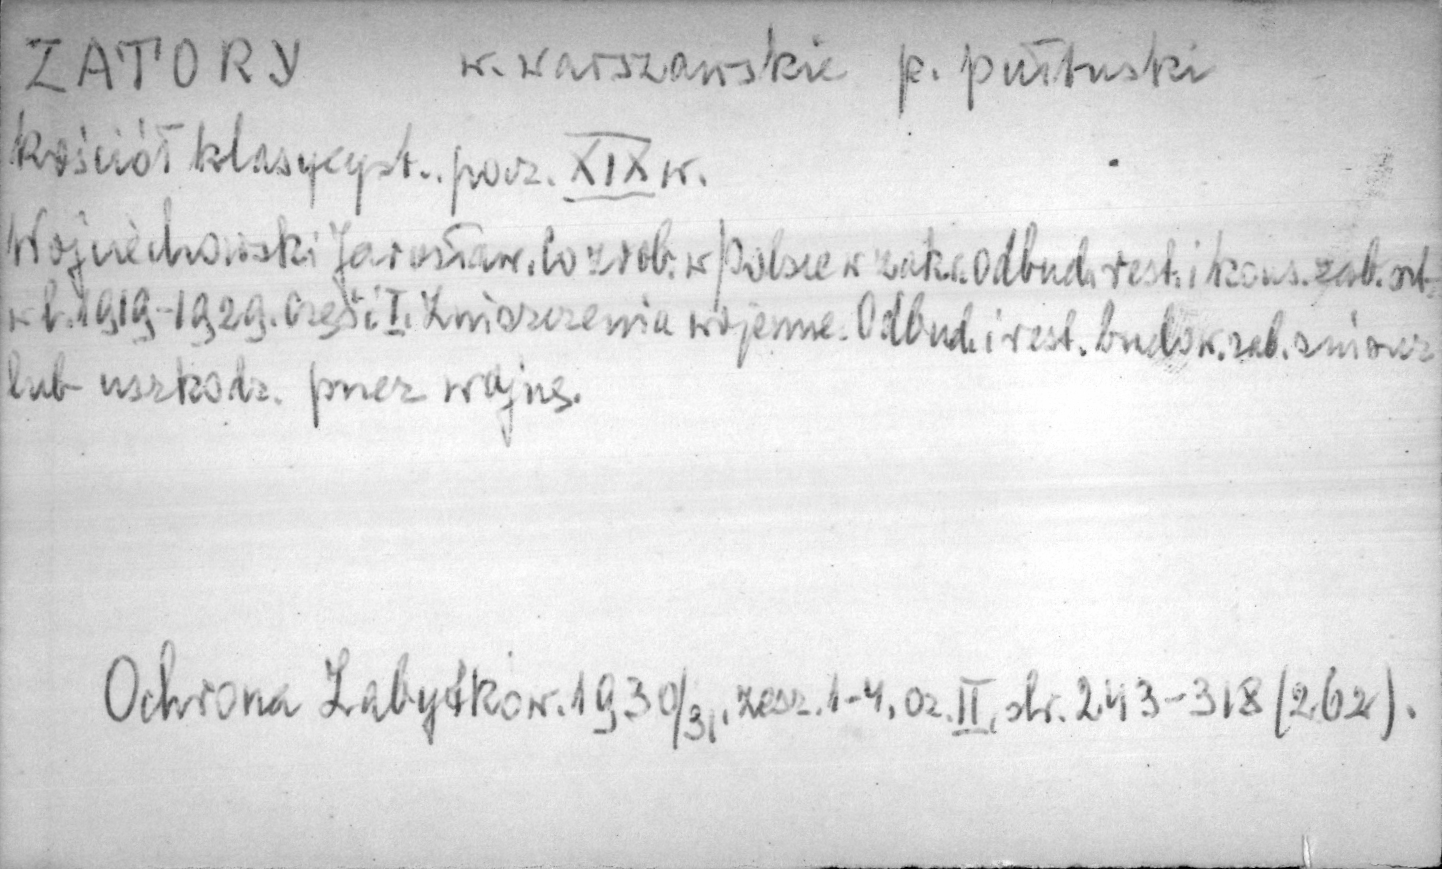 ZATORY w. warszawskie p. pułtuski
Kościół klasycyst.. pocz. XIX w.
Wojciechowski Jarosław. Co zrob. w Polsce w zakr. Odbud. rest. i kons. zab. szt.
w l. 1919-1929. Część I. Zniszczenia wojenne. Odbud. i rest. budow. zab. zniszcz
lub uszkodz. przez wojnę.
Ochrona Zabytków. 1930/31, zesz. 1-4, cz. II, str. 243-318 (262).